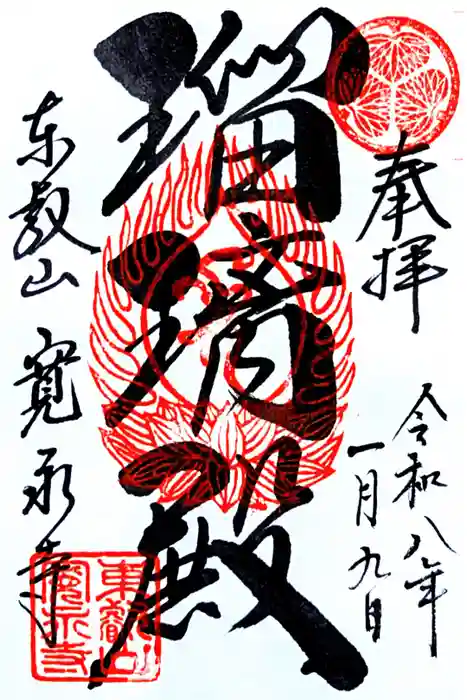 奉拝
令和八年
一月九日
瑠璃殿
東叡山 寛永寺
東叡山
寛永寺